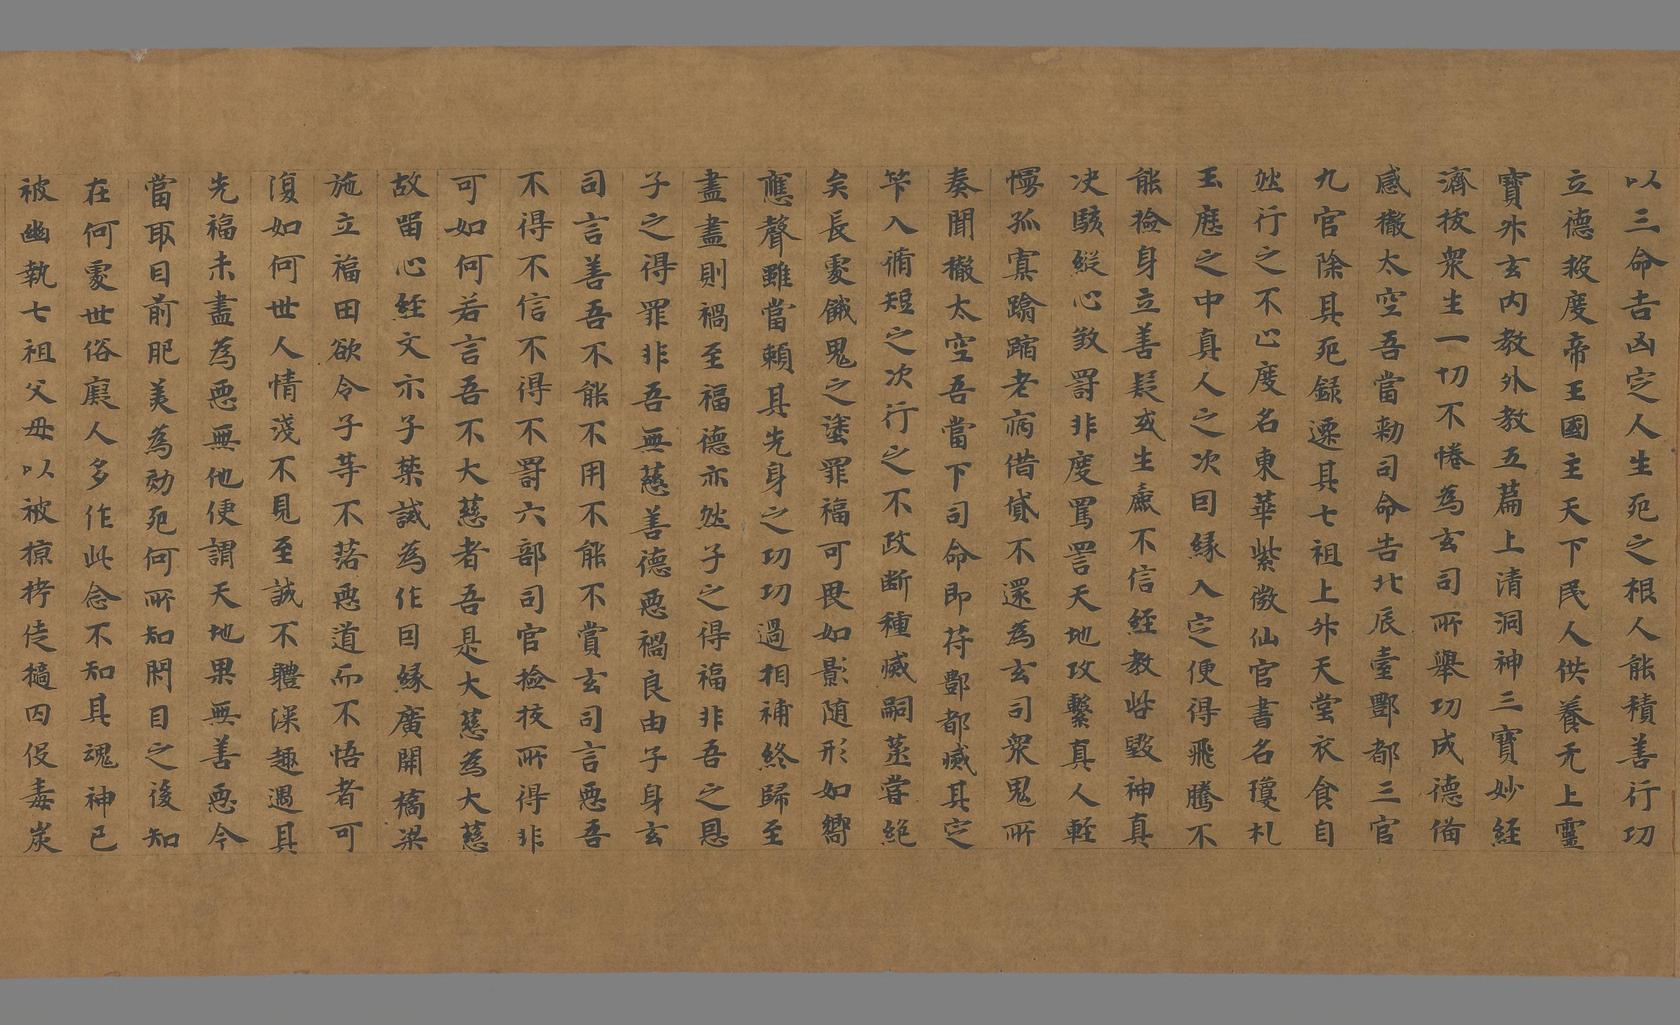 以三命吉凶定人生死之根人能積善行功
立德救度帝王國主天下民人供養无上靈
寶外玄內教外教五篇上清洞神三寶妙經
濟拔衆生一切不惓為玄司所舉功成德備
感徹太空吾當勑司命告北辰臺酆都三官
九官除其死録遷其七祖上升天堂衣食自
然行之不止度名東華紫微仙官書名瓊札
玉曆之中真人之次因緣入定便得飛騰不
能撿身立善疑或生慮不信經教呰毀神真
决駭縱心敗罸非度罵詈天地攻擊真人輕
慢孤寡蹹蹜老病借貸不還為玄司衆鬼所
奏聞徹太空吾當下司命即苻酆都滅其定
笇入脩短之次行之不政断種滅嗣蒸嘗絕
矣長處餓鬼之塗罪福可畏如影随形如嚮
應聲雖當賴其先身之功功過相補終歸至
盡盡則禍至福德亦然子之得福非吾之恩
子之得罪非吾無慈善德惡禍良由子身玄
司言善吾不能不用不能不賞玄司言惡吾
不得不信不得不罸六部司官撿挍所得非
可如何若言吾不大慈者吾是大慈為大慈
故留心經文示子藥誡為作因緣廣開橋梁
施立福田欲令子等不落惡道而不悟者可
復如何世人情淺不見至誠不軆深趣遇其
先福未盡為惡無他便謂天地果無善惡今
當取目前肥美為効死何所知閇目之後知
在何處世俗愚人多作此念不知其魂神已
被幽執七祖父母以被掠拷徒穜囚伇毒炭